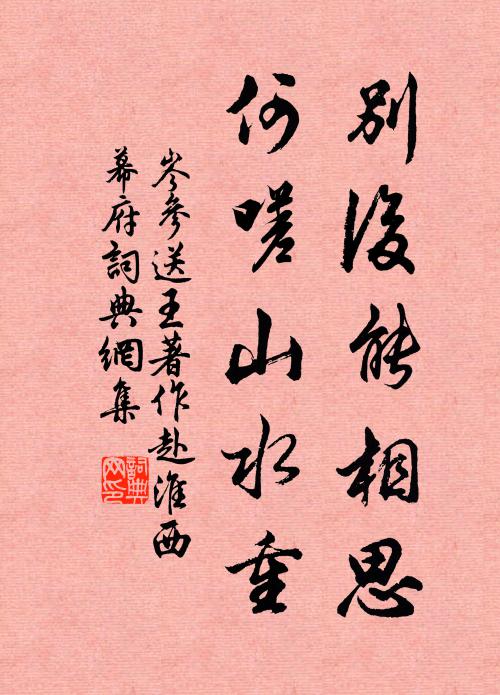 別後能相思
何嗟山水重
岑參送王著作赴淮西
幕府詞典網集
詞典
网印